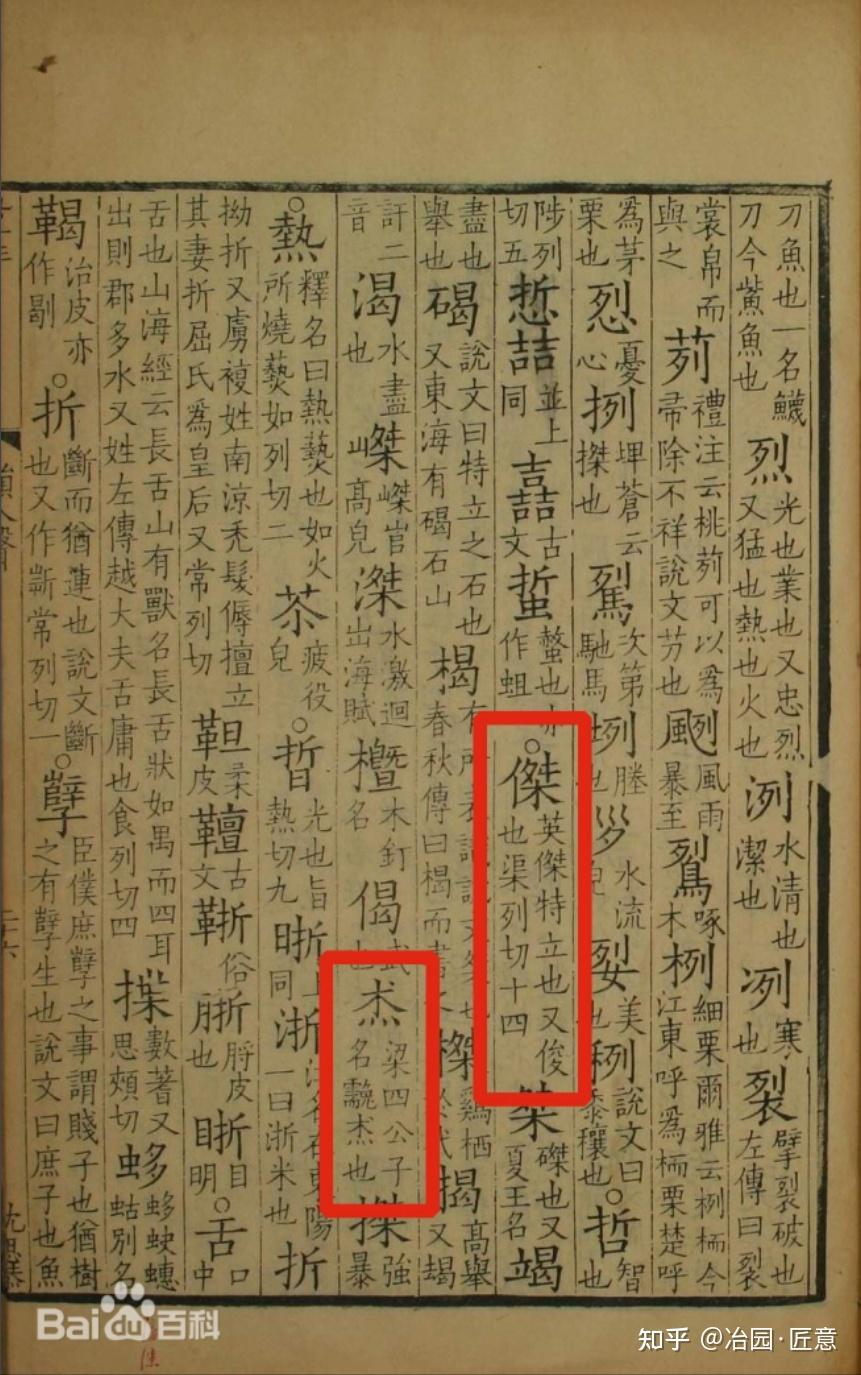 刀魚也一名鱴刀今鮆魚也 烈 光也業也又忠烈又猛也熱也火也 洌 水清也潔也 冽 寒也 裂 擘裂破也左傳曰裂
裳帛而與之 茢 禮注云桃茢可以爲帚除不祥說文芀也 颲 風雨暴至 鴷 啄木 栵 細栗爾雅云栵栭今江東呼爲栭栗楚呼
爲茅栗也 㤠 憂心 挒 埤蒼云搩也 次第馳馬 塍也 水流皃 美也 說文曰黍穰也 ○哲 智也
陟列切五 悊喆 並上同 嚞 古文 蜇 螫也亦作蛆 ○傑 英傑特立也又俊也渠列切十四 桀 磔也又夏王名 竭
盡也舉也 碣 說文曰特立之石也又東海有碣石山 楬 有所表識說文桀也春秋傳曰楬而書之 榤 雞栖於杙 揭 高舉又
訐二音 渴 水盡也 嵥 高皃 滐 水激迴出海賦 木釘名 偈 武也 杰 梁四公子名 杰也 搩 強暴
○熱 釋名曰熱爇也如火所燒爇如列切二 苶 疲役皃 ○晢 光也旨熱切九 晣 上同 浙 江名在東陽一曰浙米也 折
拗折又虜複姓南涼禿髮傉檀立其妻折屈氏爲皇后又常列切 靼 柔皮 古文 俗 皮也 目明 ○舌 口中
舌也山海經云長舌山有獸名長舌狀如禺而四耳出則郡多水又姓左傳越大夫舌庸也食列切四 揲 數蓍又思頰切 蚗蟪蛄別名
治皮亦作 ○折 斷而猶連也說文斷也又作 常列切一 ○孼 臣僕庶孼之事謂賤子也猶樹之有孼生也說文曰庶子也魚
Bai百科
知乎 @冶园·匠意